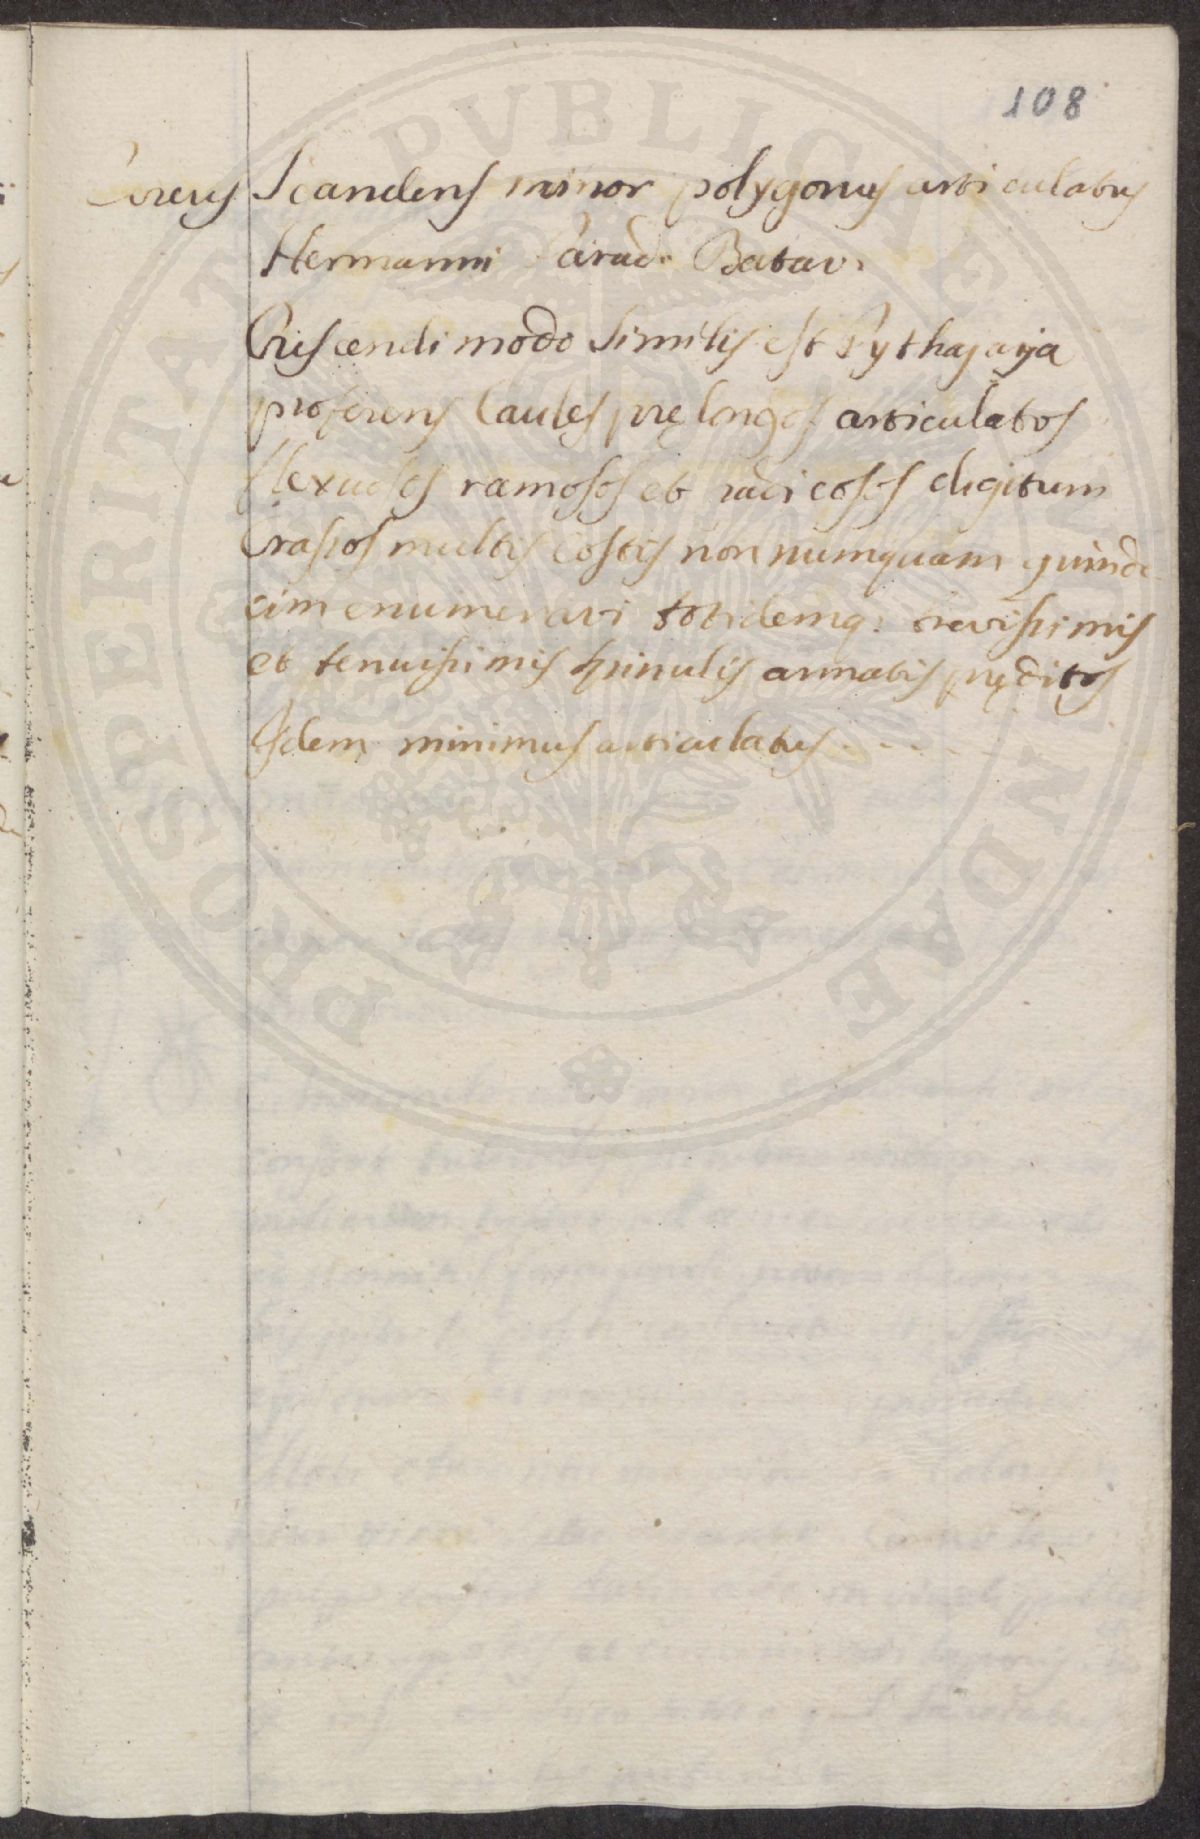 108
Cereus Scandens minor polygonus articulatus
Hermanni Parad. Batav.
Criscendi modo Similis est Pythajaya
proferens Caules prę longos articulatos
flexuosos ramosos et radicosos digitum
Crassos multis Costis non numquam quinde
cim enumeravi totidemq. brevissimis
et tenuissimis spinulis armatis pręditos
Idem minimus articulatus - - - -
PROSPERITATI PVBLICAE AVGENDAE